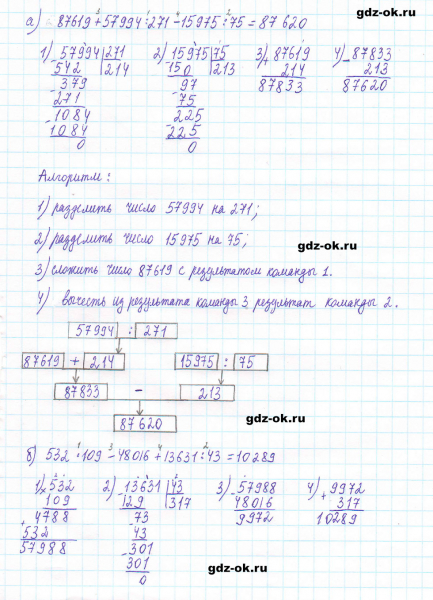 gdz-ok.ru
а) 87619 + 57994 : 271 - 15975 : 75 = 87 620
1) 57994 | 271
542 | 214
379
271
1084
1084
0
2) 15975 | 75
150 | 213
97
75
225
225
0
3) + 87619
214
87833
4) - 87833
213
87620
Алгоритм:
1) разделить число 57994 на 271;
2) разделить число 15975 на 75;
gdz-ok.ru
3) сложить число 87619 с результатом команды 1.
4) вычесть из результата команды 3 результат команды 2.
57994 : 271
87619 + 214 15975 : 75
87833 - 213
87 620
gdz-ok.ru
б) 532 · 109 - 48016 + 13631 : 43 = 10289
1) × 532
109
+ 4788
532
57988
2) 13631 | 43
129 | 317
73
43
301
301
0
3) - 57988
48016
9972
4) + 9972
317
10289
gdz-ok.ru